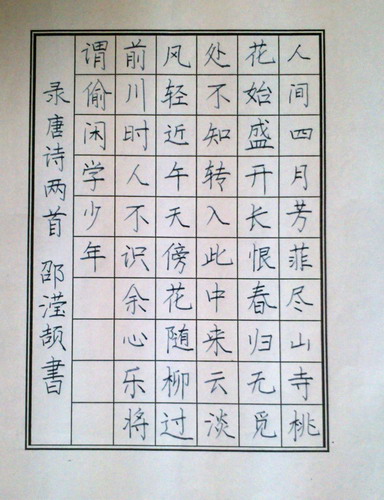 人间四月芳菲尽山寺桃
花始盛开长恨春归无觅
处不知转入此中来云淡
风轻近午天傍花随柳过
前川时人不识余心乐将
谓偷闲学少年
录唐诗两首 邵滢颉書